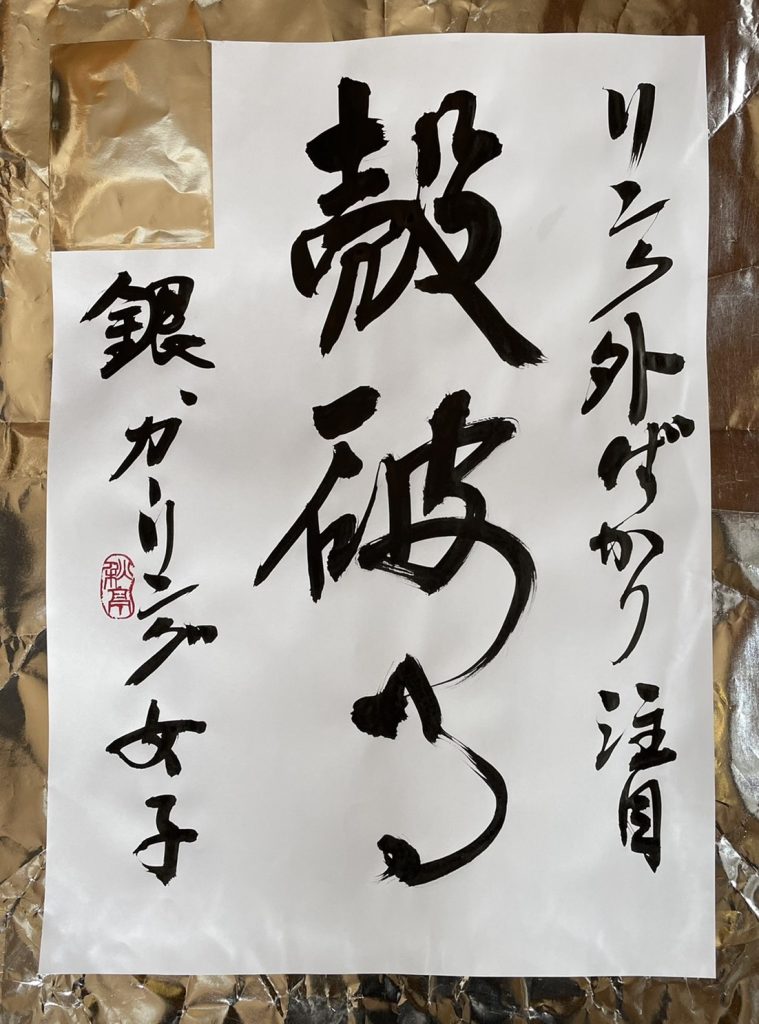 リンク外ばかり注目
殻破る
銀カーリング女子
秋亭